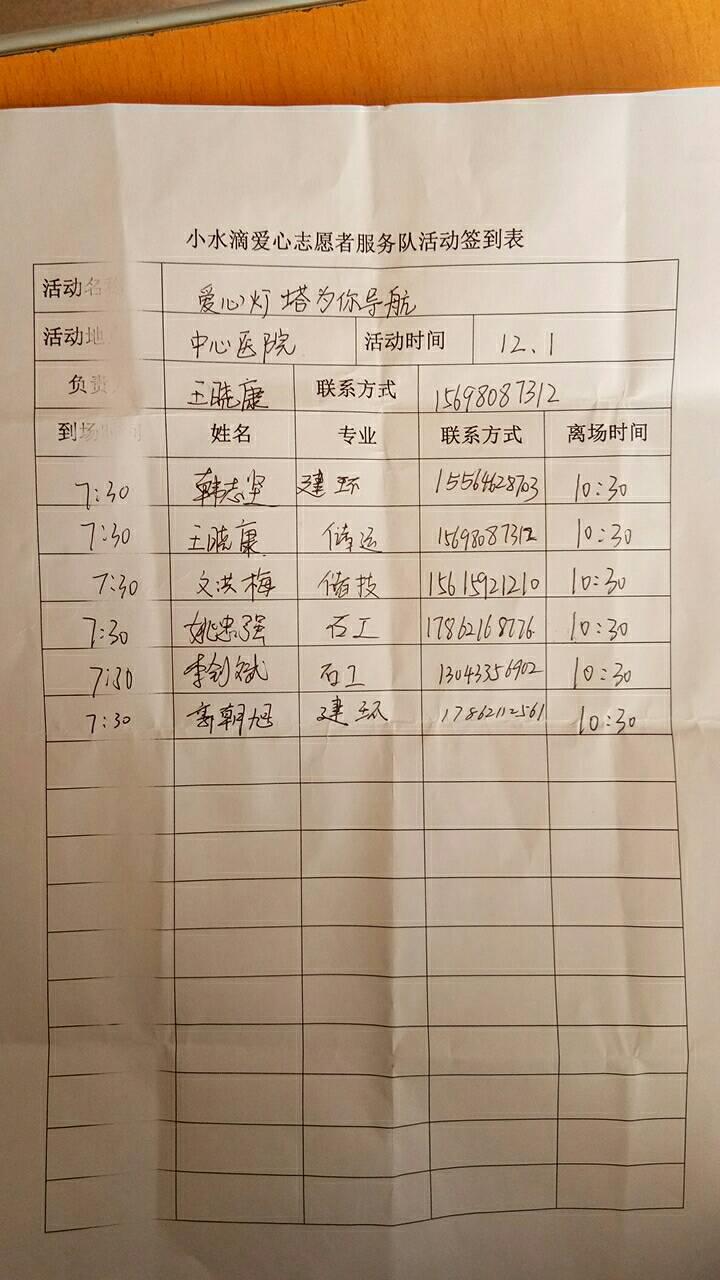 小水滴爱心志愿者服务队活动签到表
活动名称 爱心灯塔为你导航
活动地 中心医院 活动时间 12.1
负责 王晓康 联系方式 15698087312
到场时间 姓名 专业 联系方式 离场时间
7:30 韩志坚 建环 15564628703 10:30
7:30 王晓康 储运 15698087312 10:30
7:30 文洪梅 储技 15615921210 10:30
7:30 姚忠强 石工 17862168776 10:30
7:30 李剑斌 石工 13043356902 10:30
7:30 郭朝旭 建环 17862112561 10:30